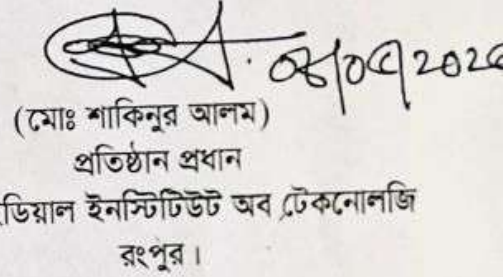 (মোঃ শাকিনুর আলম)
প্রতিষ্ঠান প্রধান
ডিয়াল ইনস্টিটিউট অব টেকনোলজি
রংপুর।